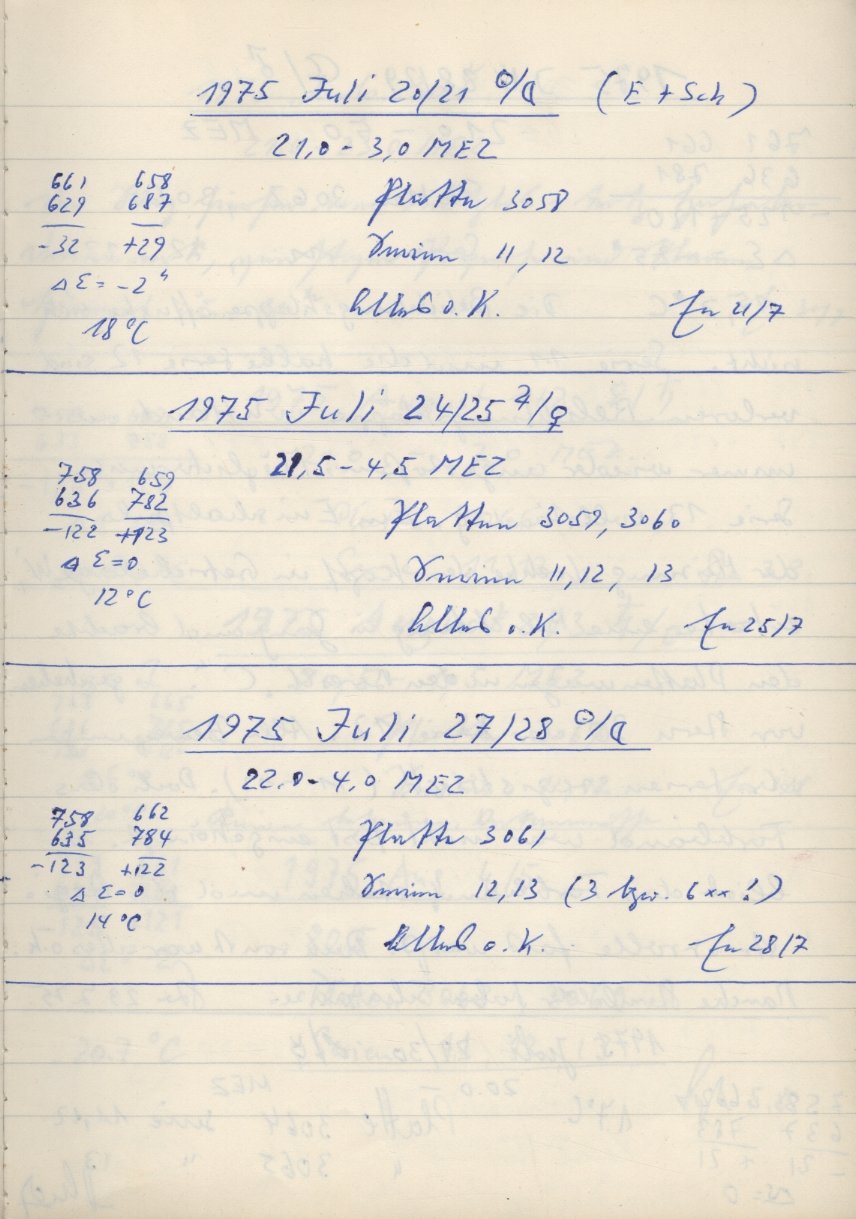 1975 Juli 20/21 ☉/☾ (E + Sch)
21,0 - 3,0 MEZ
661 658
629 687
-32 +29
ΔE = -2"
18°C
Platte 3058
Serien 11, 12
Alles o.K.
21/7
1975 Juli 24/25 ♃/♀
21,5 - 4,5 MEZ
758 659
636 782
-122 +123
ΔE = 0
12°C
Platten 3059, 3060
Serien 11, 12, 13
Alles o.K.
25/7
1975 Juli 27/28 ☉/☾
22.0 - 4.0 MEZ
758 662
635 784
-123 +122
ΔE = 0
14°C
Platte 3061
Serien 12, 13 (3 bzw. 6 xx !)
Alles o.K.
28/7